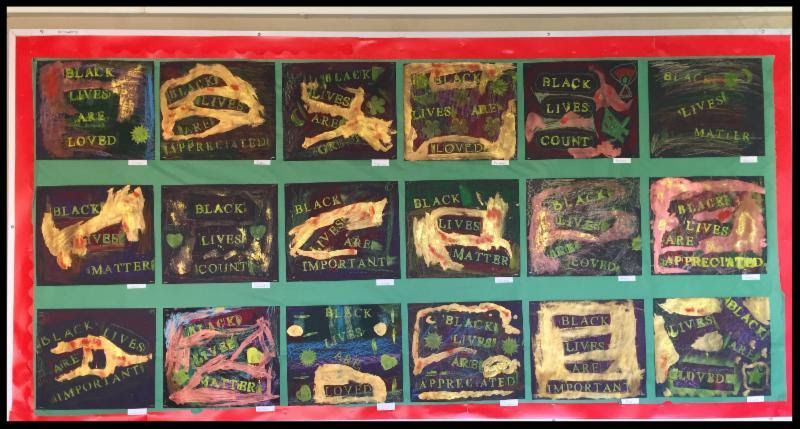 BLACK
LIVES
ARE
LOVED
BLACK
LIVES
ARE
APPRECIATED
BLACK
LIVES
ARE
BLACK
LIVES ARE
LOVED
BLACK
LIVES
COUNT
BLACK
LIVES
MATTER
BLACK
LIVES
MATTER
BLACK
LIVES
COUNT
BLACK
LIVES
ARE
IMPORTANT
BLACK
LIVES
MATTER
BLACK
LIVES
ARE
LOVED
BLACK
LIVES
ARE
APPRECIATED
BLACK LIVES
ARE
IMPORTANT
BLACK
LIVES
MATTER
BLACK
LIVES
ARE
LOVED
BLACK
LIVES
ARE
APPRECIATED
BLACK
LIVES
ARE
IMPORTANT
BLACK
LIVES
ARE
LOVED